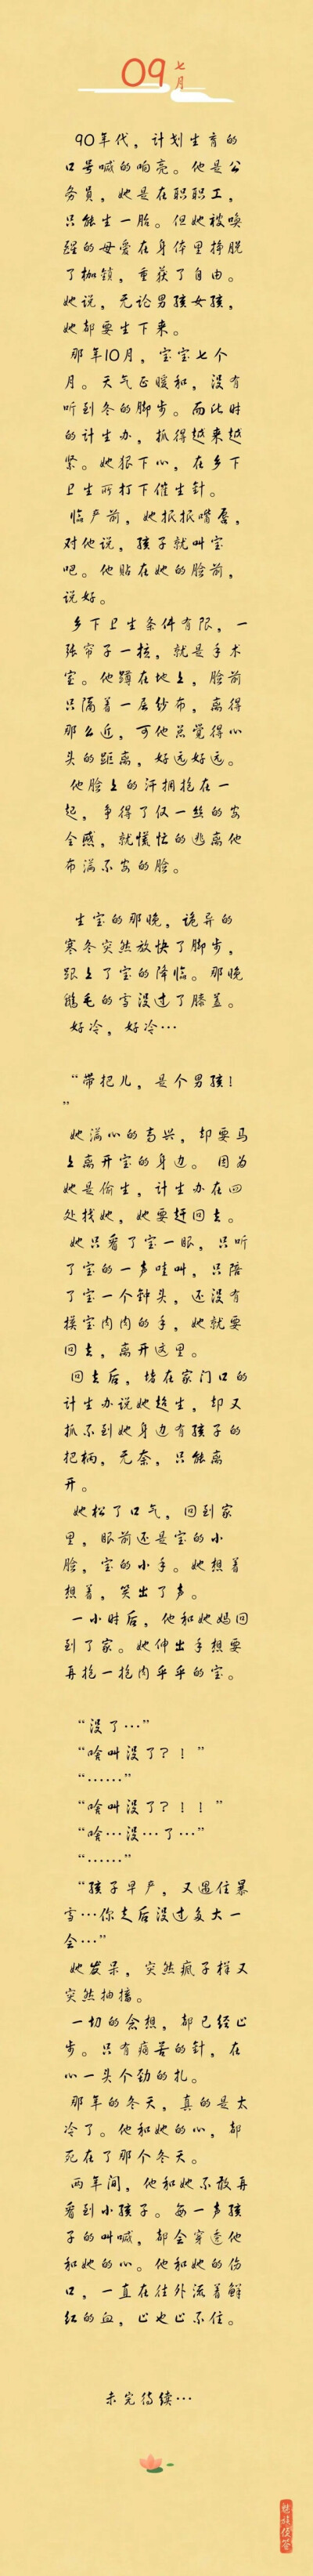 09
七
月
90年代，计划生育的
口号喊的响亮。他是公
务员，她是在职职工，
只能生一胎。但她被唤
醒的母爱在身体里挣脱
了枷锁，重获了自由。
她说，无论男孩女孩，
她都要生下来。
那年10月，宝宝七个
月。天气正暖和，没有
听到冬的脚步。而此时
的计生办，抓得越来越
紧。她狠下心，在乡下
卫生所打下催生针。
临产前，她抿抿嘴唇，
对他说，孩子就叫宝
吧。他贴在她的脸前，
说好。
乡下卫生条件有限，一
张帘子一拉，就是手术
室。他蹲在地上，脸前
只隔着一层纱布，离得
那么近，可他总觉得心
头的距离，好远好远。
他脸上的汗拥抱在一
起，争得了仅一丝的安
全感，就慌忙的逃离他
布满不安的脸。
生宝的那晚，诡异的
寒冬突然放快了脚步，
跟上了宝的降临。那晚
鹅毛的雪没过了膝盖。
好冷，好冷…
“带把儿，是个男孩！
”
她满心的高兴，却要马
上离开宝的身边。因为
她是偷生，计生办在四
处找她，她要赶回去。
她只看了宝一眼，只听
了宝的一声哇叫，只陪
了宝一个钟头，还没有
摸宝肉肉的手，她就要
回去，离开这里。
回去后，堵在家门口的
计生办说她超生，却又
抓不到她身边有孩子的
把柄，无奈，只能离
开。
她松了口气，回到家
里，眼前还是宝的小
脸，宝的小手。她想着
想着，笑出了声。
一小时后，他和她妈回
到了家。她伸出手想要
再抱一抱肉乎乎的宝。
“没了…”
“啥叫没了？！”
“……”
“啥叫没了？！！”
“啥…没…了…”
“……”
“孩子早产，又遇住暴
雪…你走后没过多大一
会…”
她发呆，突然疯子样又
突然抽搐。
一切的念想，都已经止
步。只有痛苦的针，在
心一头个劲的扎。
那年的冬天，真的是太
冷了。他和她的心，都
死在了那个冬天。
两年间，他和她不敢再
看到小孩子。每一声孩
子的叫喊，都会穿透他
和她的心。他和她的伤
口，一直在往外流着鲜
红的血，止也止不住。
未完待续…